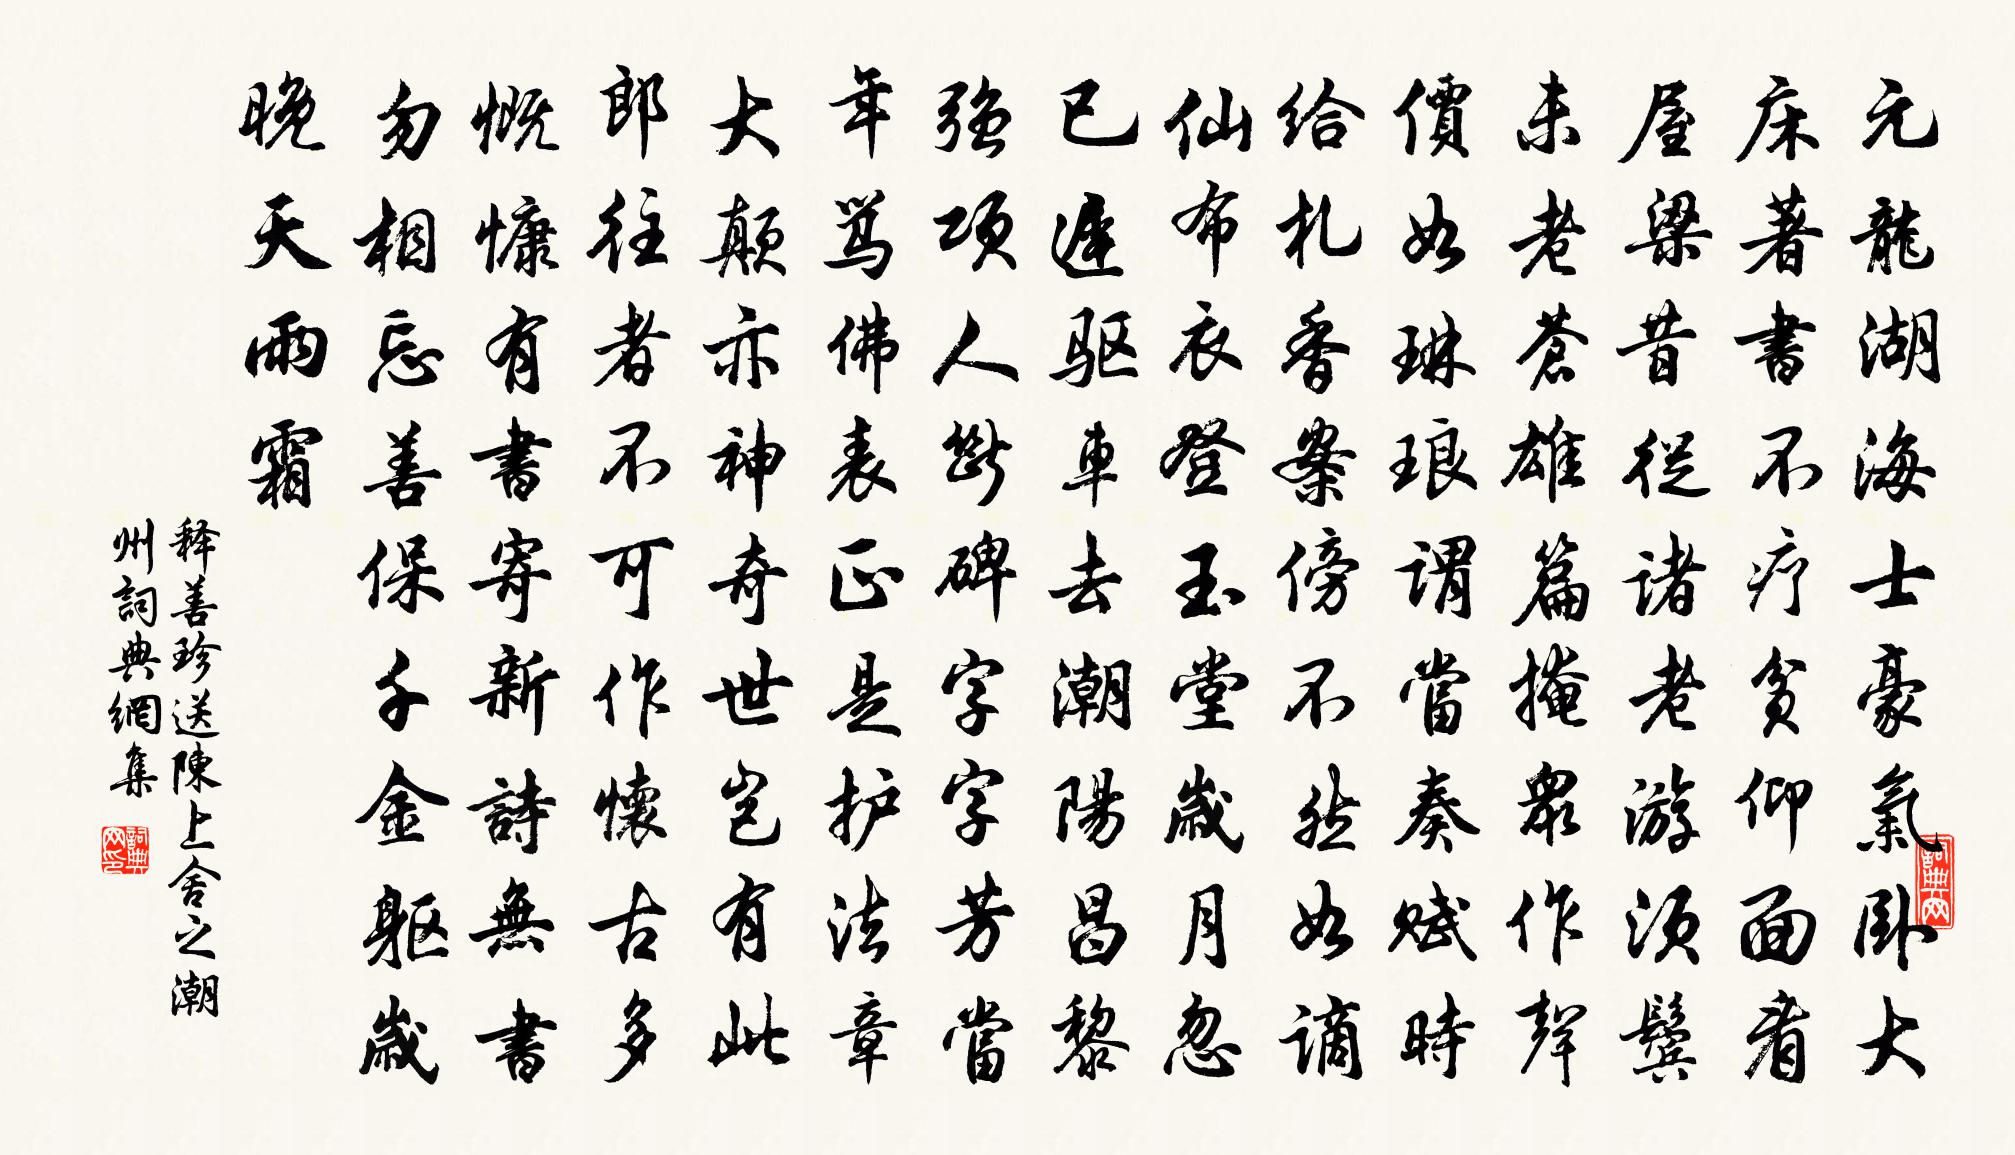 元龍湖海士豪氣卧大
床著書不疗貧仰面看
屋梁昔從诸老游须鬓
未老蒼雄篇掩眾作聲
價如琳琅謂當奏赋時
给札香案傍不然如谪
仙布衣登玉堂歲月忽
已遲驱車去潮陽昌黎
强项人斷碑字字芳當
年骂佛表正是护法章
大颠亦神奇世岂有此
郎往者不可作懷古多
慨慷有書寄新詩無書
勿相忘善保千金躯歲
晚天雨霜
释善珍送陳上舍之潮
州詞典網集
詞典网
詞典网印